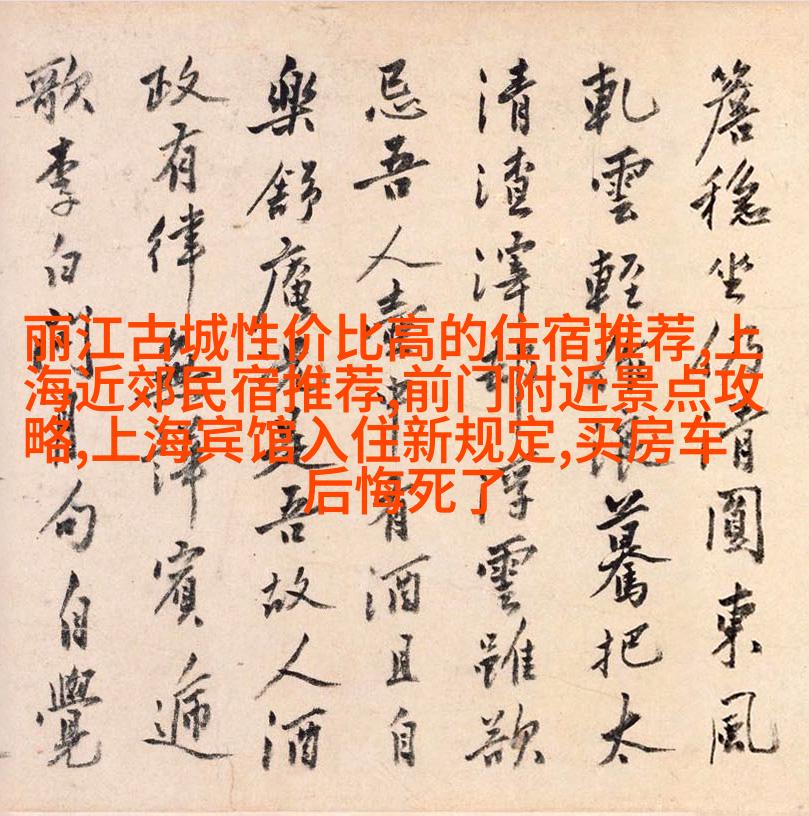 丽江古城性价比高的住宿推荐,上
海近郊民宿推荐,前门附近景点攻
略,上海宾馆入住新规定,买房车
后悔死了
簷穩坐圓東風
軋雲輕驀把太
清渣滓浮雲雖欲
忌吾人有酒且自
樂舒庵是吾故人酒
政有律律賓遞
歌李白句自覺